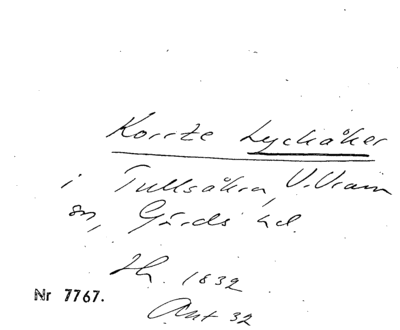 Korrze Lyckåker
i Tullsåkra, V. Vram
sn, Gärds hd.
Lh. 1832
Nr 7767.
Akt 32